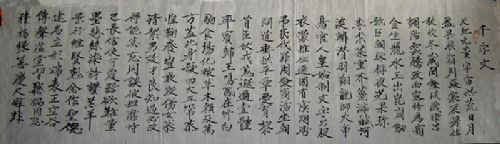 千字文
天地玄黃宇宙洪荒日月
盈昃辰宿列張寒來暑往
秋收冬藏閏餘成歲律呂
調陽雲騰致雨露結為霜
金生麗水玉出崑崗劍
號巨闕珠稱夜光果珍
李柰菜重芥薑海鹹河
淡鱗潛羽翔龍師火帝
鳥官人皇始制文字乃服
衣裳推位讓國有虞陶唐
吊民伐罪周發商湯坐朝
問道垂拱平章愛育黎
首臣伏戎羌遐邇壹體
率賓歸王鳴鳳在樹白
駒食場化被草木賴及萬
方蓋此身髮四大五常恭
惟鞠養豈敢毀傷女慕
貞潔男效才良知過必改
得能莫忘罔談彼短靡恃
己長信使可覆器欲難量
墨悲絲染詩讚羔羊
景行維賢剋念作聖德
建名立形端表正空谷
傳聲虛堂習聽禍因惡
積福緣善慶尺璧非